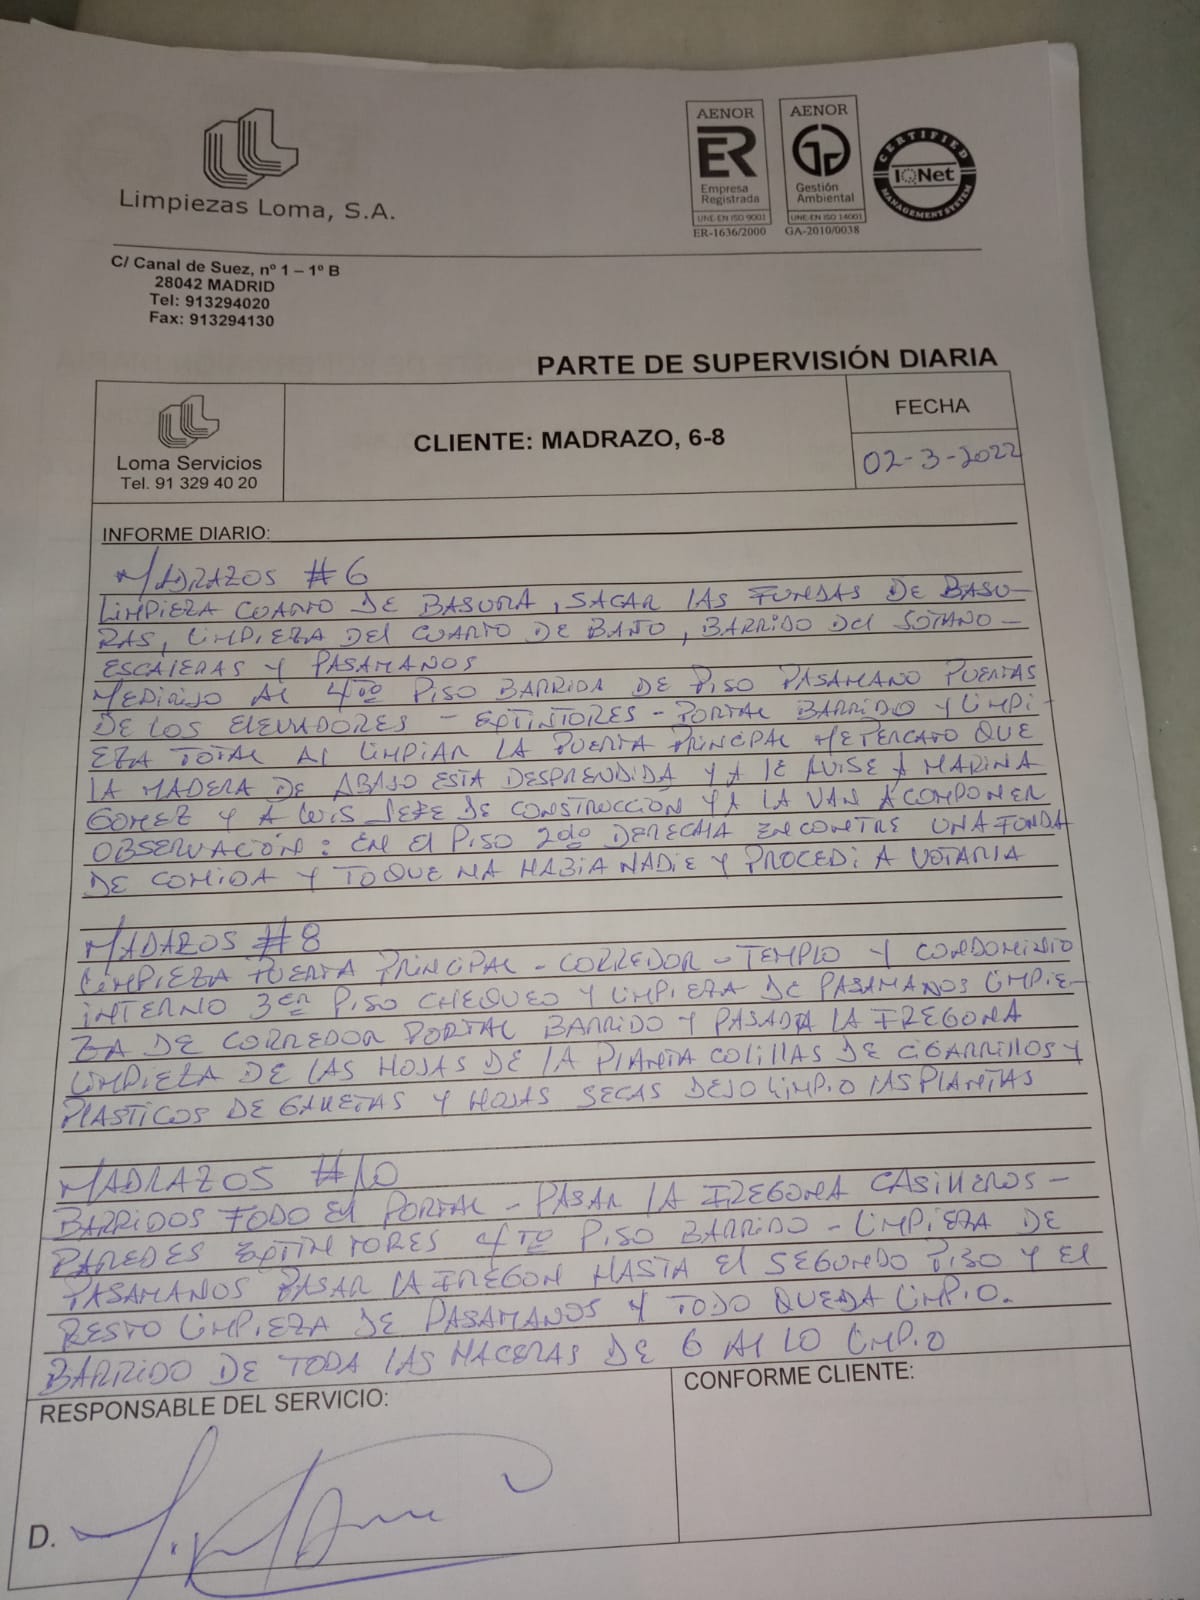 Limpiezas Loma, S.A.
AENOR
ER
Empresa
Registrada
UNE-EN ISO 9001
ER-1636/2000
AENOR
Gestión
Ambiental
UNE-EN ISO 14001
GA-2010/0038
CERTIFIED
IQNet
MANAGEMENT SYSTEM
C/ Canal de Suez, nº 1 – 1º B
28042 MADRID
Tel: 913294020
Fax: 913294130
PARTE DE SUPERVISIÓN DIARIA
Loma Servicios
Tel. 91 329 40 20
CLIENTE: MADRAZO, 6-8
FECHA
02-3-2022
INFORME DIARIO:
MADRAZOS #6
LIMPIEZA CUARTO DE BASURA, SACAR LAS FUNDAS DE BASU-
RAS, LIMPIEZA DEL CUARTO DE BAÑO, BARRIDO DEL SOTANO -
ESCALERAS Y PASAMANOS
MEDIRIJO AL 4TO PISO BARRIDA DE PISO PASAMANO PUERTAS
DE LOS ELEVADORES - EXTINTORES - PORTAL BARRIDO Y LIMPI-
EZA TOTAL AL LIMPIAR LA PUERTA PRINCIPAL ME PERCATO QUE
LA MADERA DE ABAJO ESTA DESPRENDIDA Y A LE AVISE A MARINA
GOMEZ Y A LUIS JEFE DE CONSTRUCCIÓN YA LA VAN A COMPONER
OBSERVACIÓN: EN EL PISO 2do DERECHA ENCONTRE UNA FUNDA
DE COMIDA Y TOQUE NA HABIA NADIE Y PROCEDI A VOTARLA
MADAZOS #8
LIMPIEZA PUERTA PRINCIPAL - CORREDOR - TEMPLO Y CONDOMINIO
INTERNO 3ER PISO CHEQUEO Y LIMPIEZA DE PASAMANOS LIMPIE-
ZA DE CORREDOR PORTAL BARRIDO Y PASADA LA FREGONA
LIMPIEZA DE LAS HOJAS DE LA PLANTA COLILLAS DE CIGARRILLOS Y
PLASTICOS DE GALLETAS Y HOJAS SECAS DEJO LIMPIO LAS PLANTAS
MADRAZOS #10
BARRIDOS TODO EL PORTAL - PASAR LA FREGONA CASILLEROS -
PAREDES EXTINTORES 4TO PISO BARRIDO - LIMPIEZA DE
PASAMANOS PASAR LA FREGON HASTA EL SEGUNDO PISO Y EL
RESTO LIMPIEZA DE PASAMANOS Y TODO QUEDA LIMPIO.
BARRIDO DE TODA LAS MACERAS DE 6 AL 10 LIMPIO
RESPONSABLE DEL SERVICIO:
CONFORME CLIENTE:
D.